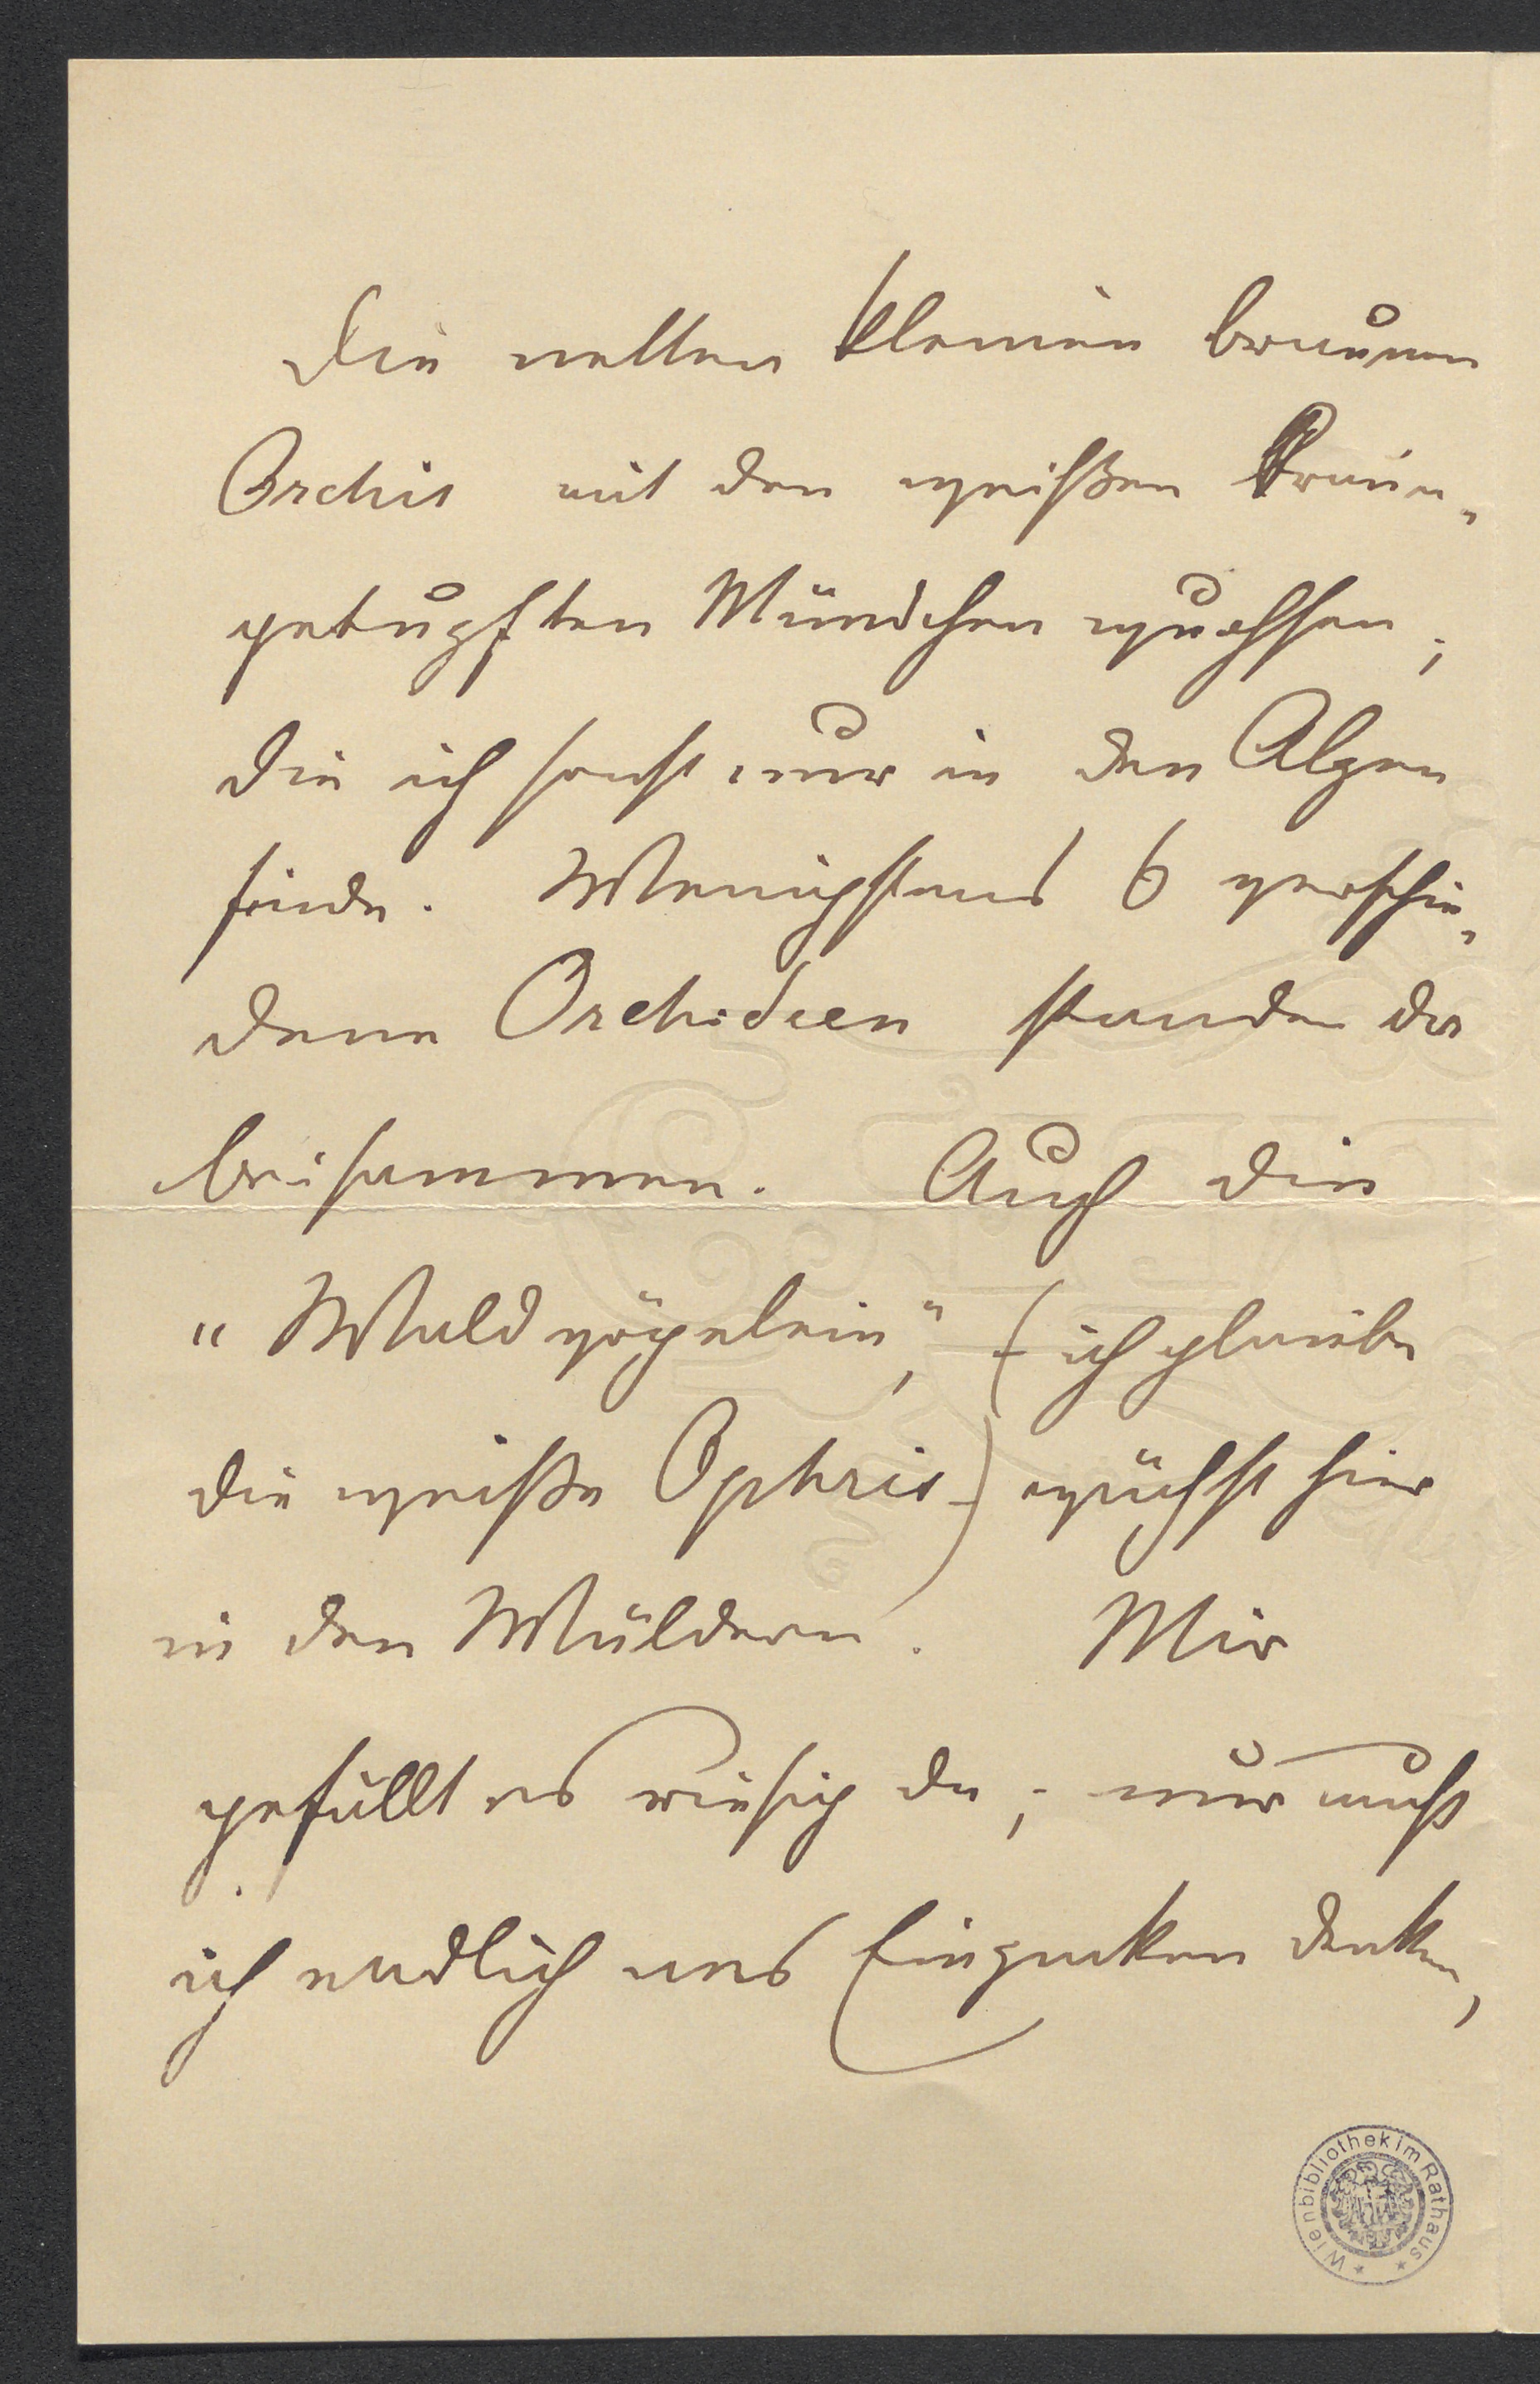 die netten kleinen braunen
Orchis mit den weißen braun-
getupften Mündchen wuchsen,
die ich sonst nur in den Alpen
finde. Wenigstens 6 verschie-
dene Orchideen standen da
beisammen. Auch die
"Waldvögelein", (- ich glaube
die weiße Ophris -) wächst hier
in den Wäldern. Mir
gefällt es riesig da, nur muß
ich endlich ans Einpacken denken,
Wienbibliothek im Rathaus